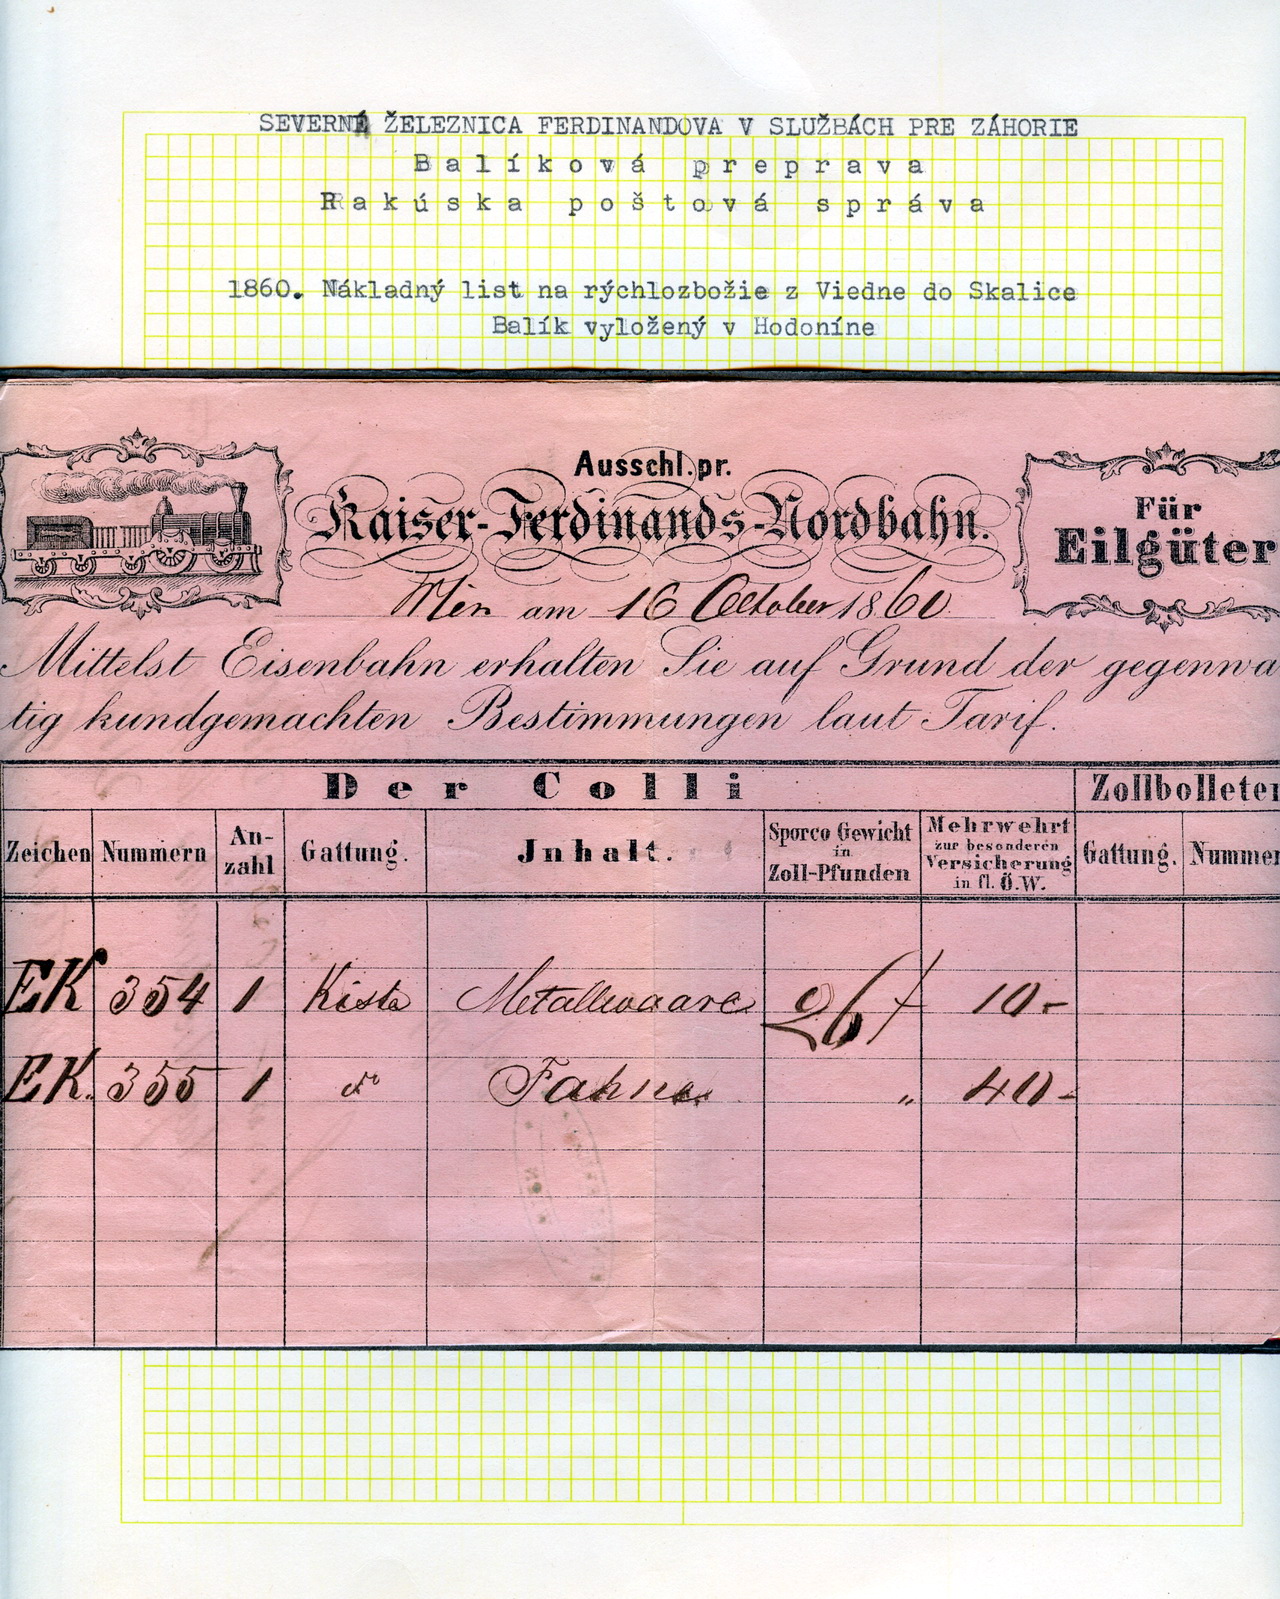 SEVERNÁ ŽELEZNICA FERDINANDOVA V SLUŽBÁCH PRE ZÁHORIE
Balíková preprava
Rakúska poštová správa
1860. Nákladný list na rýchlozbožie z Viedne do Skalice
Balík vyložený v Hodoníne
Ausschl.pr.
Kaiser-Ferdinands-Nordbahn.
Für
Eilgüter
Wien am 16 October 1860
Mittelst Eisenbahn erhalten Sie auf Grund der gegenwä
tig kundgemachten Bestimmungen laut Tarif.
Der Colli Zollbolleten
Zeichen Nummern An-zahl Gattung. Inhalt. Sporco Gewicht in Zoll-Pfunden Mehrwehrt zur besonderen Versicherung in fl. Ö.W. Gattung. Nummer
EK 354 1 Kiste Metallwaare 26 10-
EK. 355 1 do Fahne " 40-